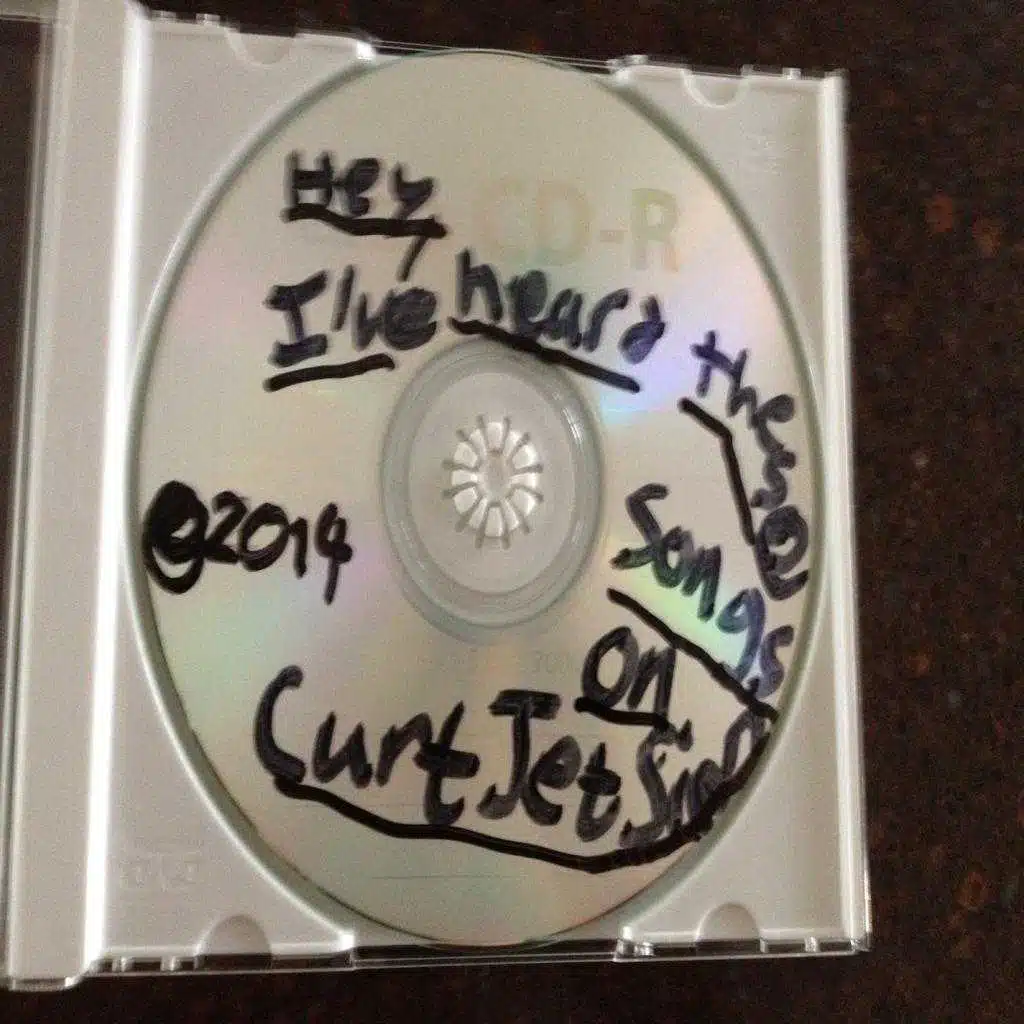 Hey,
CD-R
I've heard
these
songs
©2014
on
Curt Jet